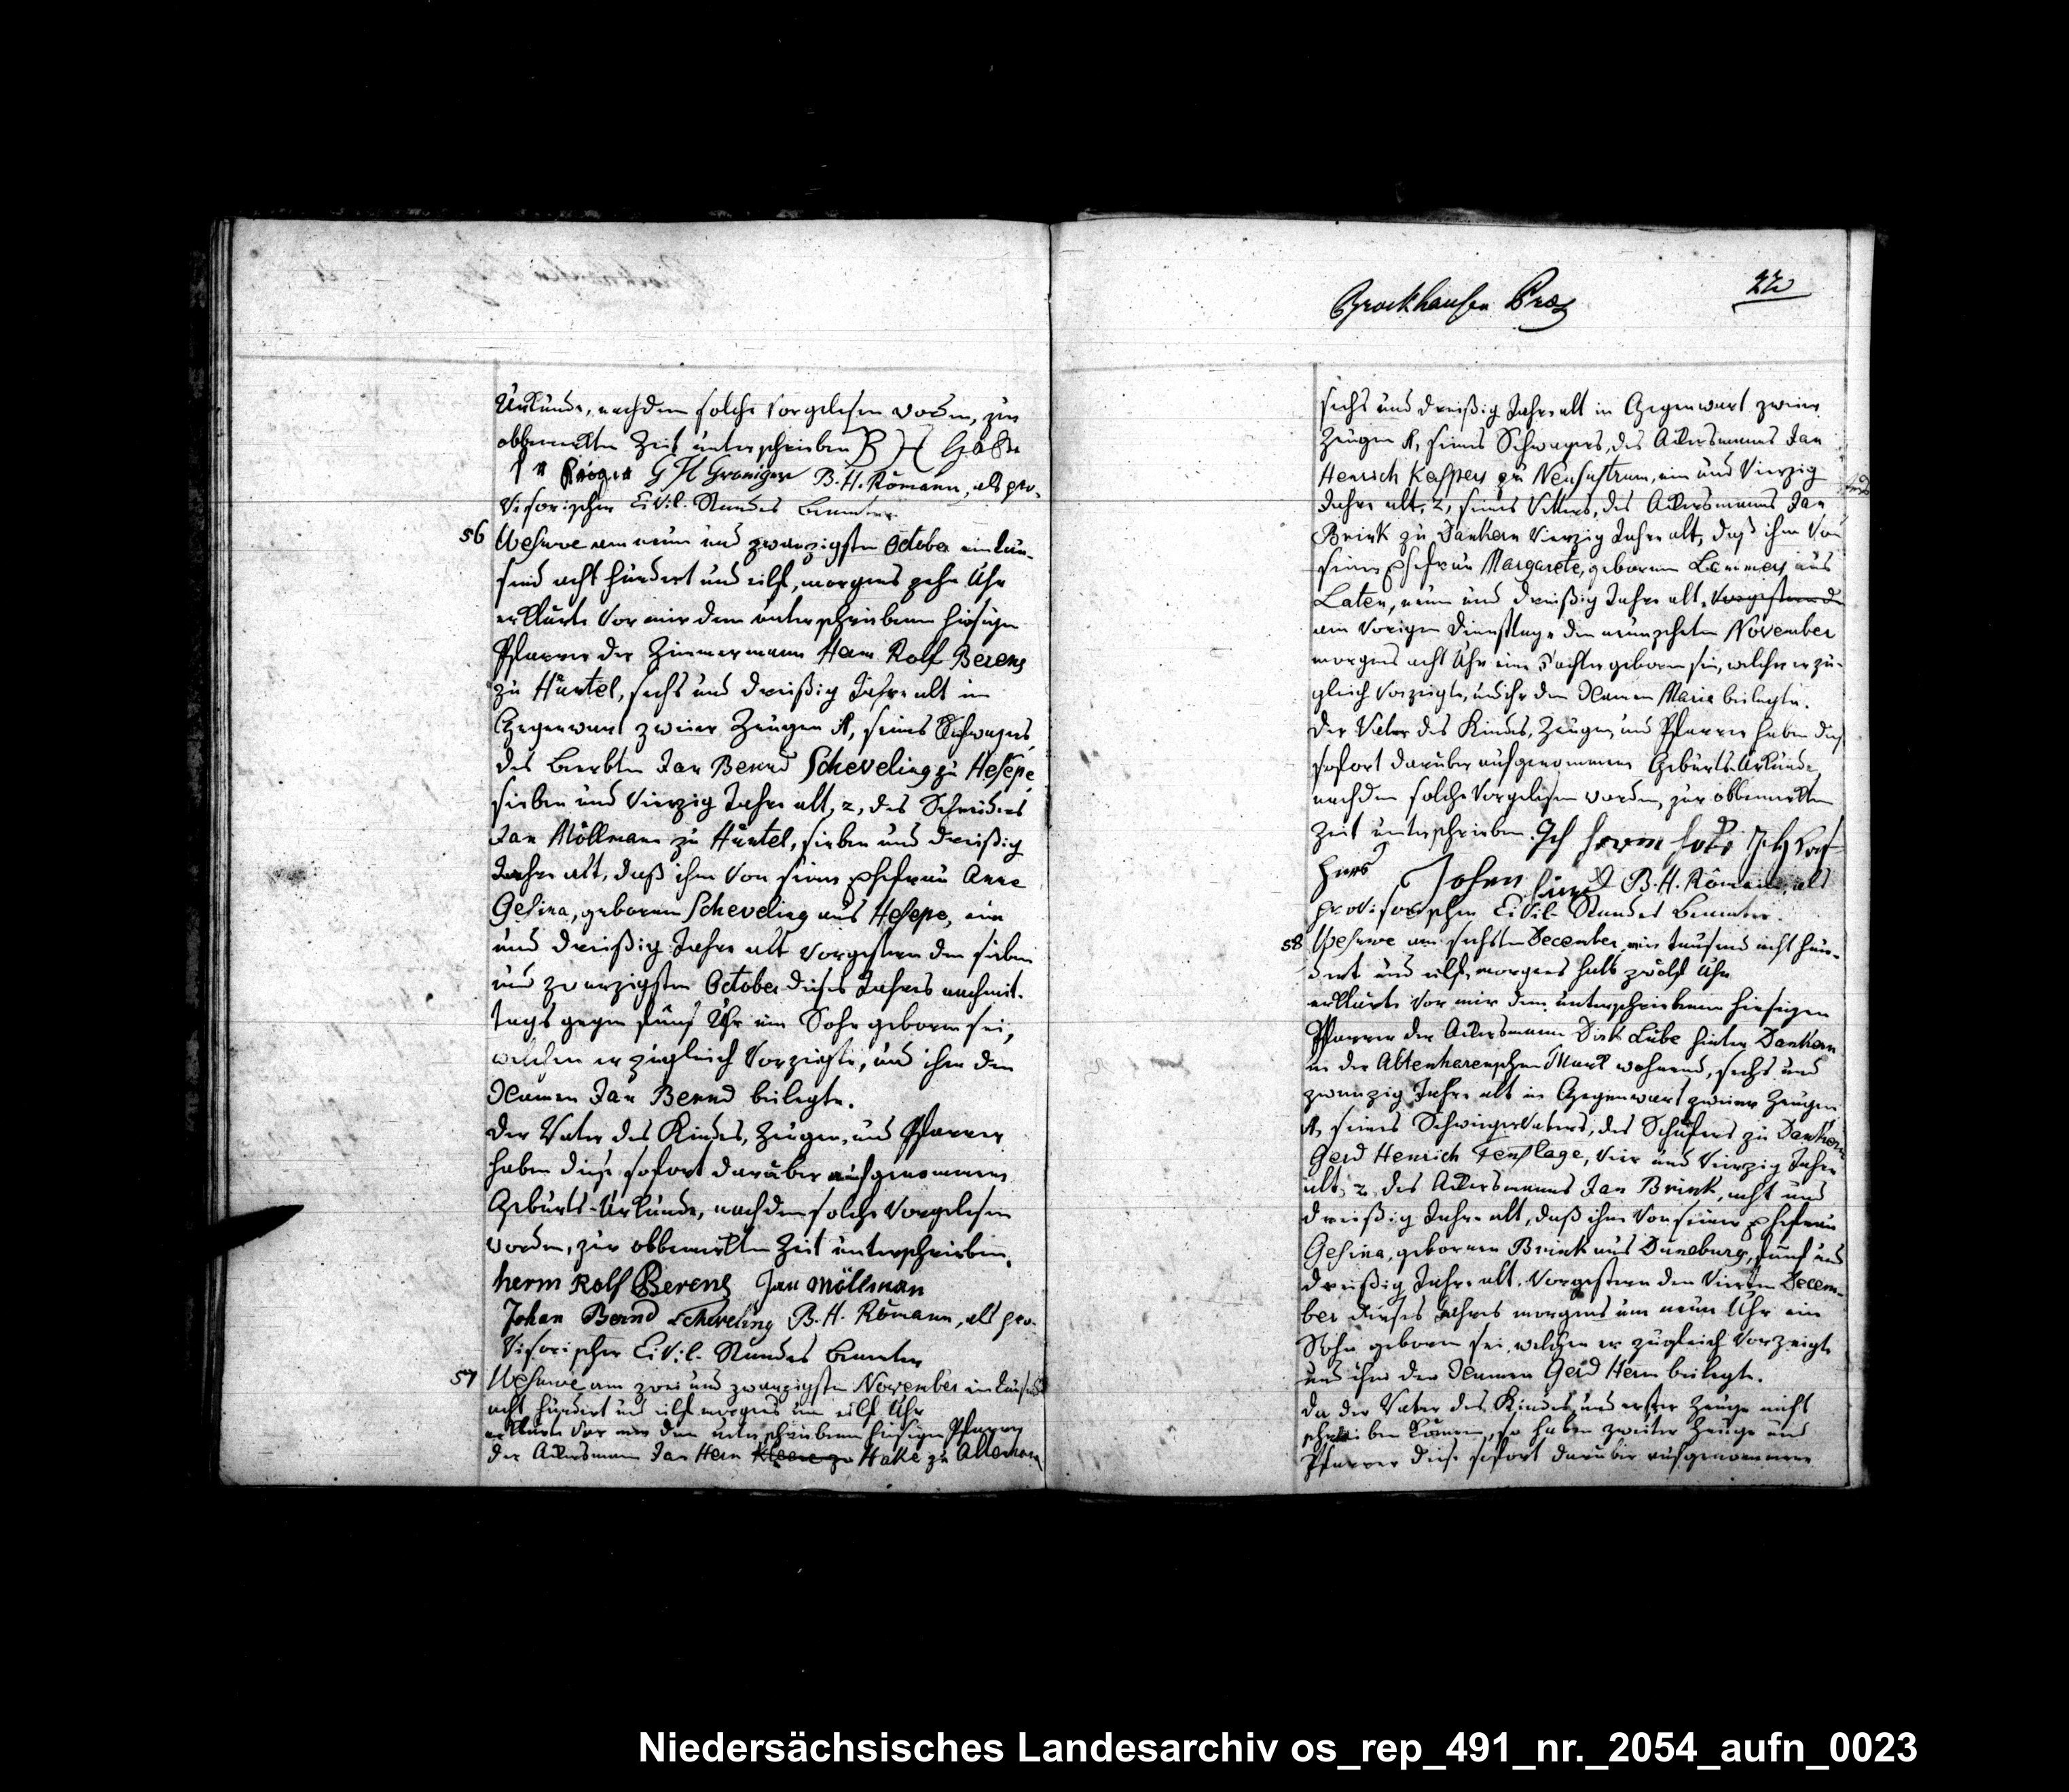 Urkunde, nachdem solche vorgelesen worden, zur
obbemerkten Zeit unterschrieben B H
G H Groniger B. H. Römann, als pro-
visorischer Civil-Standes Beamter
56 Wesuwe am neun und zwanzigsten October ein tau-
send acht hundert und eilf, morgens zehn Uhr
erklärte vor mir dem unterschriebenen hiesigen
Pfarrer der Zimmermann Herm Rolf Berens
zu Hüntel, sechs und dreißig Jahre alt in
Gegenwart zweier Zeugen 1, seines Schwagers,
des Beerbten Jan Bernd Scheveling zu Hesepe
sieben und vierzig Jahre alt, 2, des Schneiders
Jan Möllmann zu Hüntel, sieben und dreißig
Jahre alt, daß ihm von seiner Ehefrau Anne
Gesina, geborenen Scheveling aus Hesepe, ein
und dreißig Jahre alt vorgestern den sieben
und zwanzigsten October dieses Jahres nachmit-
tags gegen fünf Uhr ein Sohn geboren sei,
welchen er zugleich vorzeigte, und ihm den
Namen Jan Bernd beilegte.
Der Vater des Kindes, Zeugen, und Pfarrer
haben diese sofort darüber aufgenommene
Geburts-Urkunde, nachdem solche vorgelesen
worden, zur obbemerkten Zeit unterschrieben.
herm Rolf Berens Jan Möllman
Johan Bernd Scheveling B. H. Römann, als pro-
visorischer Civil-Standes Beamter
57 Wesuwe am zwei und zwanzigsten November ein tausend
acht hundert und eilf morgens um eilf Uhr
erklärte vor mir dem unterschriebenen hiesigen Pfarrer
der Ackersmann Jan Herm Kleene zu Hake zu Altenharen
Brockhausen Præs
22
sechs und dreißig Jahre alt in Gegenwart zweier
Zeugen 1, seines Schwagers, des Ackersmanns Jan
Henrich Kaspers zu Neusustrum, ein und vierzig
Jahre alt, 2, seines Vetters, des Ackersmanns Jan
Brink zu Dankern vierzig Jahre alt, daß ihm von
seiner Ehefrau Margarete, geborenen Lammers aus
Laten, neun und dreißig Jahre alt, vorgestern den
am vorigen Dienstage den neunzehnten November
morgens acht Uhr eine Tochter geboren sei, welche er zu-
gleich vorzeigte, und ihr den Namen Marie beilegte.
Der Vater des Kindes, Zeugen, und Pfarrer haben diese
sofort darüber aufgenommene Geburts-Urkunde,
nachdem solche vorgelesen worden, zur obbemerkten
Zeit unterschrieben.
B. H. Römann, als
provisorischer Civil-Standes Beamter.
58 Wesuwe am sechsten December, ein tausend acht hun-
dert und eilf, morgens halb zwölf Uhr
erklärte vor mir dem unterschriebenen hiesigen
Pfarrer der Ackersmann Dirk Lübe hinter Dankern
in der Altenharenschen Mark wohnend, sechs und
zwanzig Jahre alt in Gegenwart zweier Zeugen
1, seines Schwiegervaters, des Schäfers zu Dankern
Gerd Henrich Tenslage, vier und vierzig Jahre
alt, 2, des Ackersmanns Jan Brink, acht und
dreißig Jahre alt, daß ihm von seiner Ehefrau
Gesina, geborenen Brink aus Düneburg, fünf und
dreißig Jahre alt, vorgestern den vierten Decem-
ber dieses Jahres morgens um neun Uhr ein
Sohn geboren sei, welchen er zugleich vorzeigte
und ihm den Namen Gerd Herm beilegte.
Da der Vater des Kindes und erster Zeuge nicht
schreiben können, so haben zweiter Zeuge und
Pfarrer diese sofort darüber aufgenommene
Niedersächsisches Landesarchiv os_rep_491_nr._2054_aufn_0023